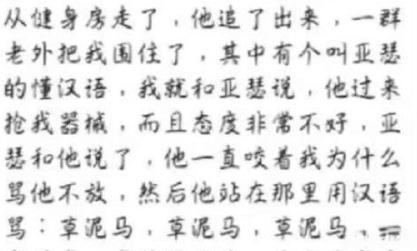 从健身房走了，他追了出来，一群
老外把我围住了，其中有个叫亚瑟
的懂汉语，我就和亚瑟说，他过来
抢我器械，而且态度非常不好，亚
瑟和他说了，他一直咬着我为什么
骂他不放，然后他站在那里用汉语
骂：草泥马，草泥马，草泥马，